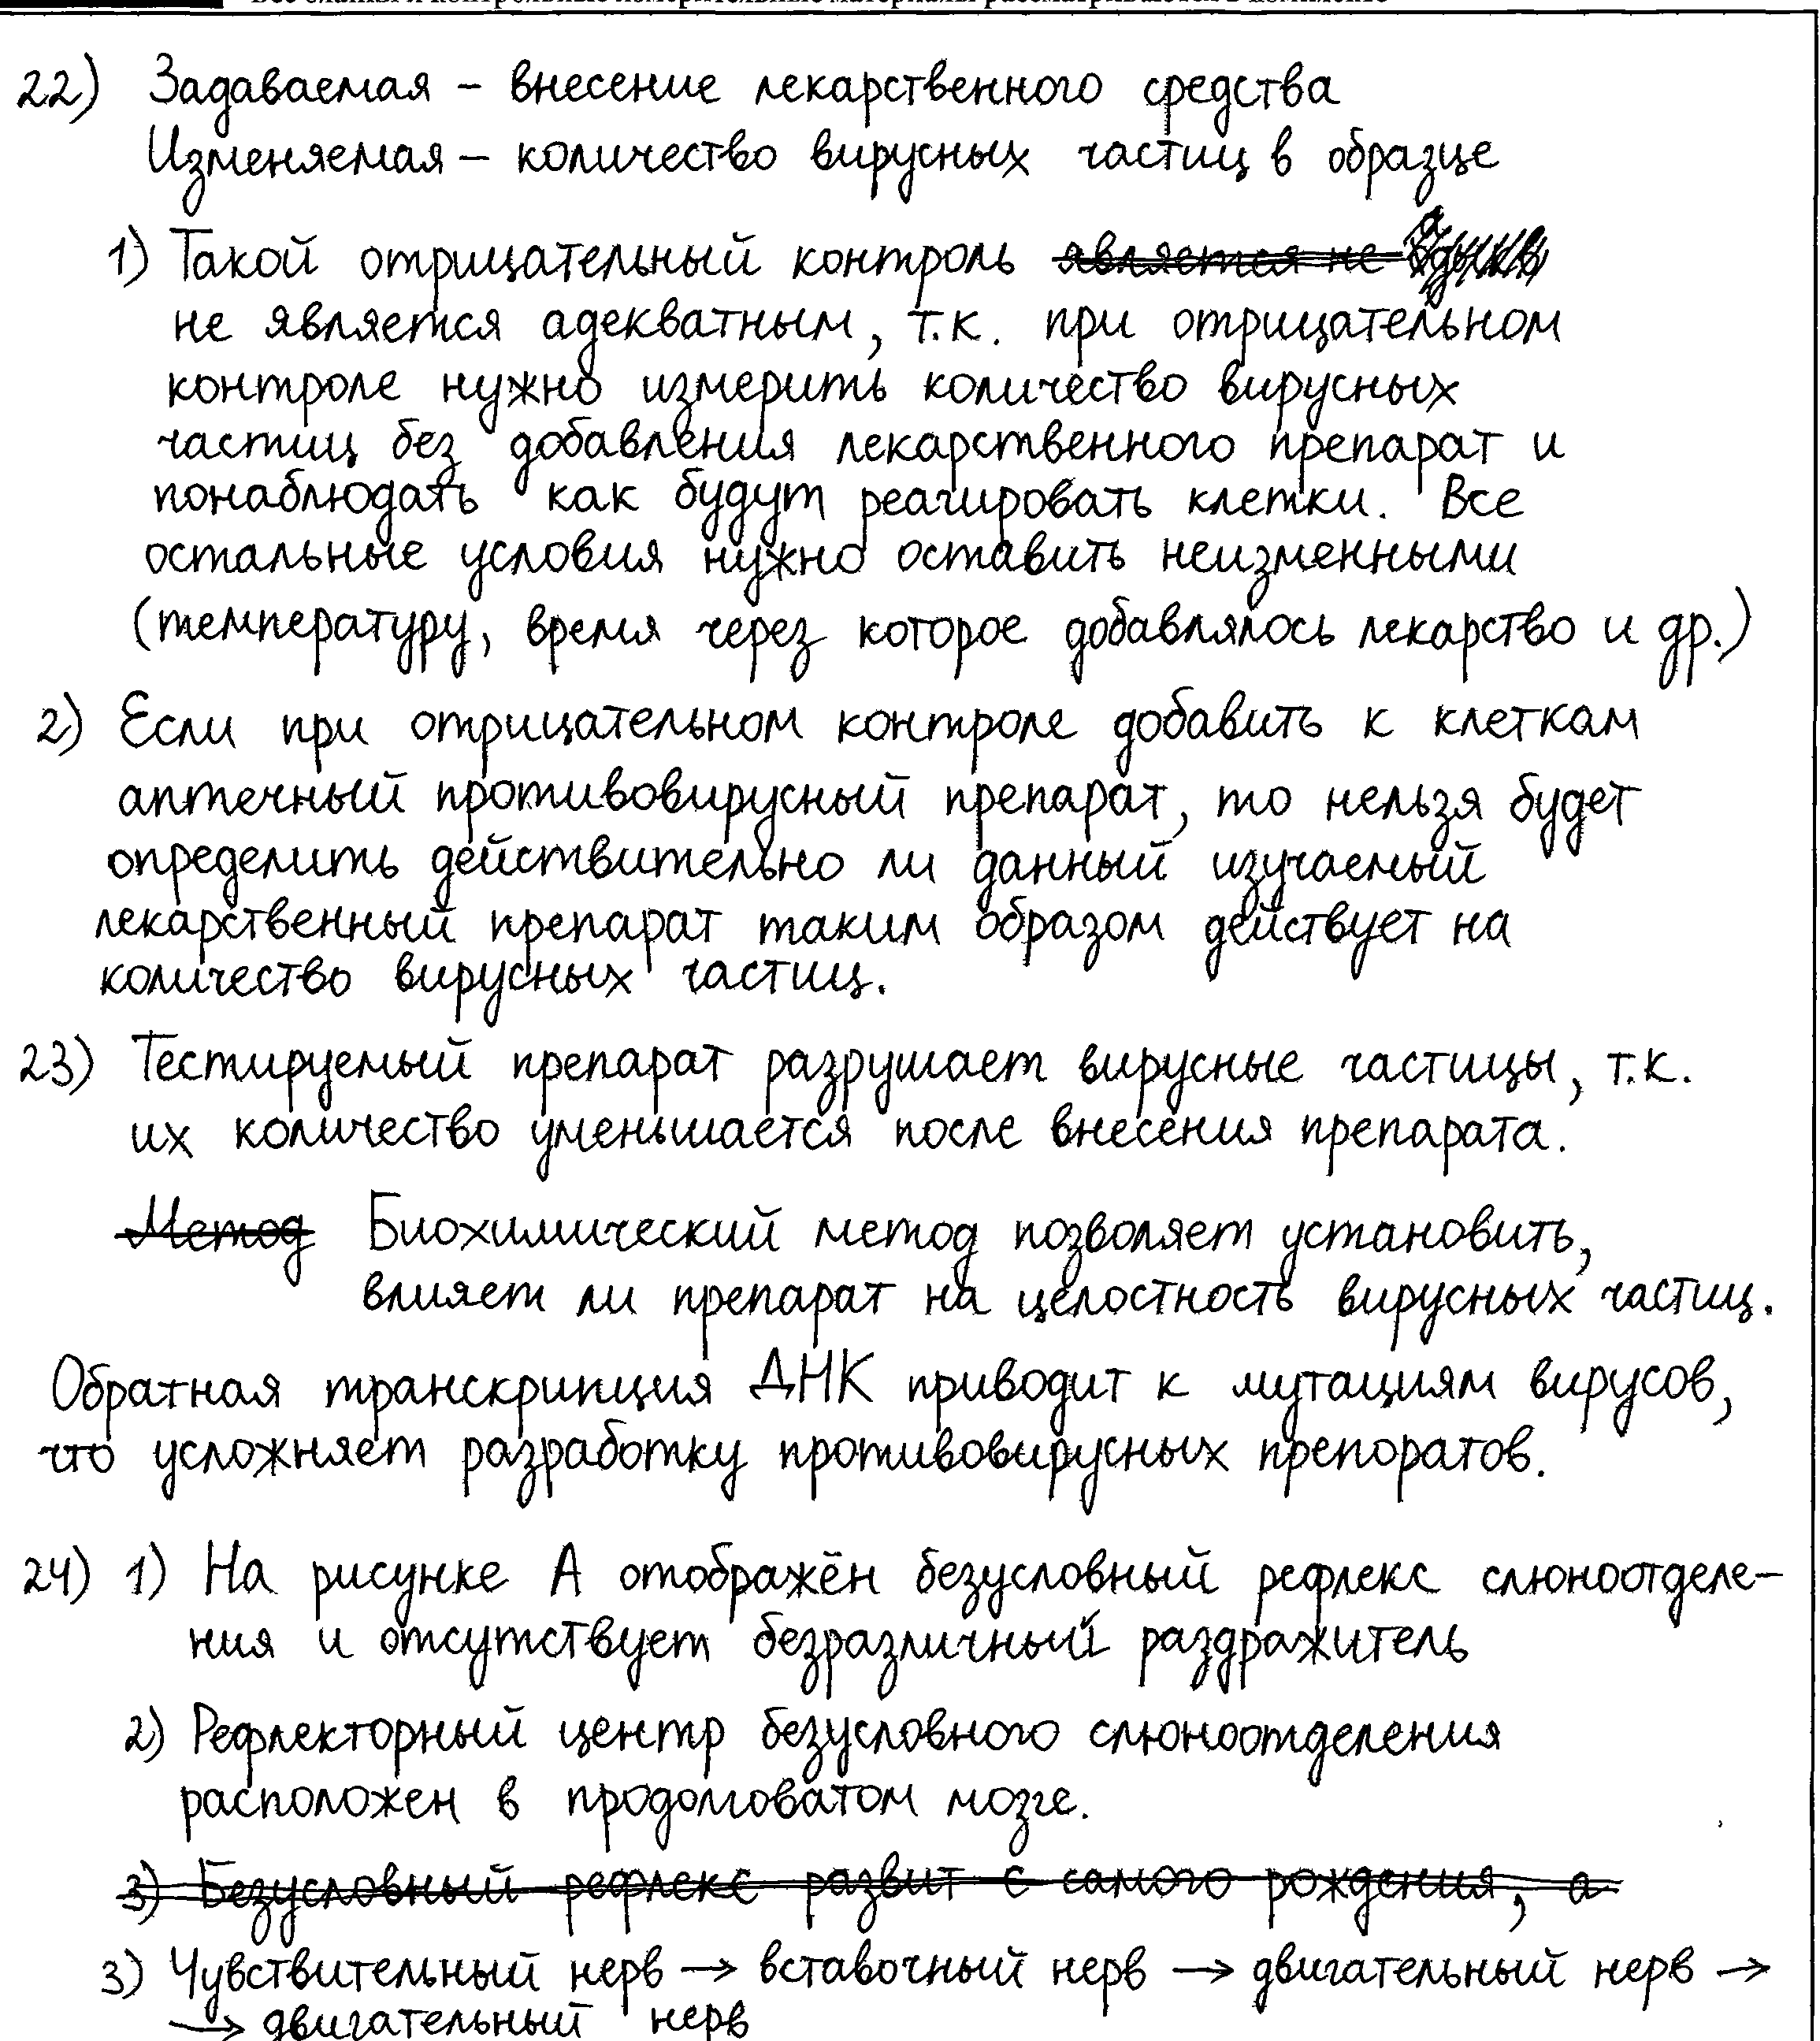 Все бланки и контрольные измерительные материалы рассматриваются в комплекте
22) Задаваемая – внесение лекарственного средства
Изменяемая – количество вирусных частиц в образце
1) Такой отрицательный контроль является не
не является адекватным, т.к. при отрицательном
контроле нужно измерить количество вирусных
частиц без добавления лекарственного препарат и
понаблюдать как будут реагировать клетки. Все
остальные условия нужно оставить неизменными
(температуру, время через которое добавлялось лекарство и др.)
2) Если при отрицательном контроле добавить к клеткам
аптечный противовирусный препарат, то нельзя будет
определить действительно ли данный изучаемый
лекарственный препарат таким образом действует на
количество вирусных частиц.
23) Тестируемый препарат разрушает вирусные частицы, т.к.
их количество уменьшается после внесения препарата.
Метод Биохимический метод позволяет установить,
влияет ли препарат на целостность вирусных частиц.
Обратная транскрипция ДНК приводит к мутациям вирусов,
что усложняет разработку противовирусных препоратов.
24) 1) На рисунке А отображён безусловный рефлекс слюноотделе-
ния и отсутствует безразличный раздражитель
2) Рефлекторный центр безусловного слюноотделения
расположен в продолговатом мозге.
3) Безусловный рефлекс развит с самого рождения, а
3) Чувствительный нерв → вставочный нерв → двигательный нерв →
→ двигательный нерв